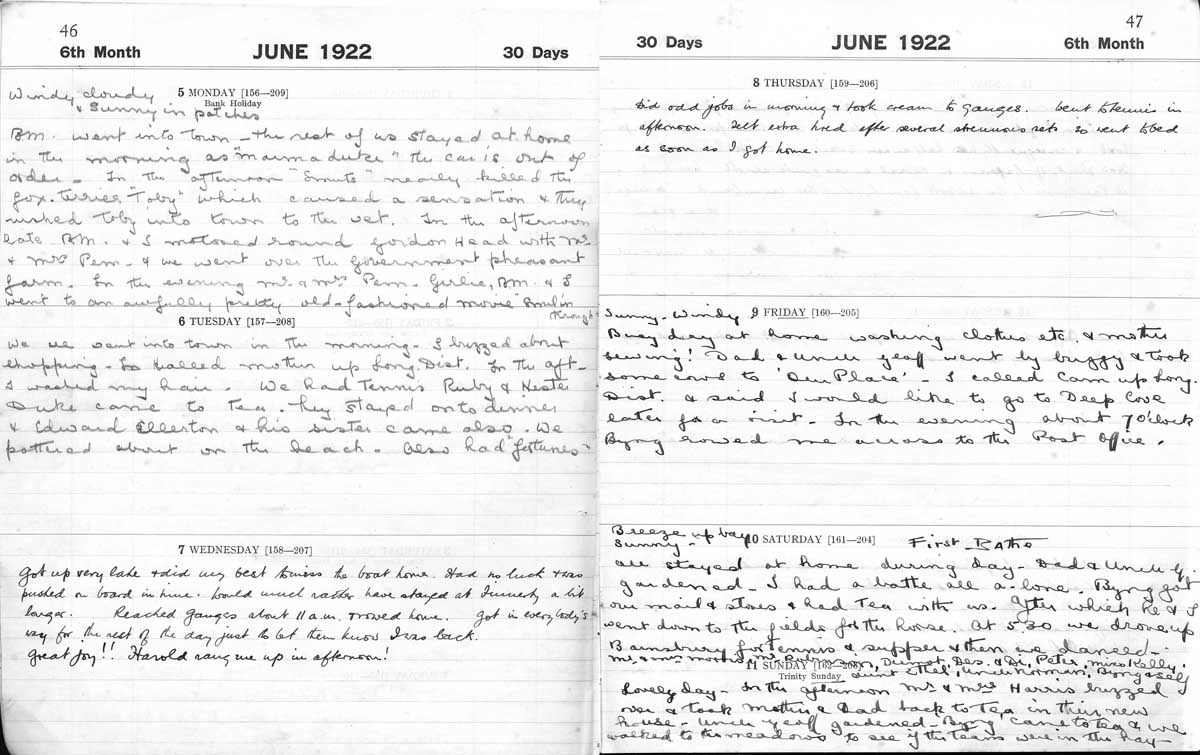 46
6th Month JUNE 1922 30 Days
Windy, cloudy 5 MONDAY [156—209]
& Sunny in patches Bank Holiday
B.M. went into town – the rest of us stayed at home
in the morning as "Marmaduke" the car is out of
order – In the afternoon "Smuts" nearly killed the
fox-terrier "Toby" which caused a sensation & they
rushed Toby into town to the vet. In the afternoon
late B.M. & I motored round Gordon Head with Mr
& Mrs Pem – & we went over the Government pheasant
farm. In the evening Mr & Mrs Pem. Girlie, B.M. & I
went to an awfully pretty old-fashioned movie "Smilin
through"
6 TUESDAY [157—208]
We went into town in the morning – I buzzed about
shopping – called mother up Long. Dist. In the aft–
I washed my hair. We had Tennis Ruby & Hester
Duke came to tea. They stayed on to dinner
& Edward Ellerton & his sister came also. We
pottered about on the beach – Also had "fortunes"
7 WEDNESDAY [158—207]
Got up very late & did my best to miss the boat home. Had no luck & was
pushed on board in time. Would much rather have stayed at a bit
longer. Reached Ganges about 11 a.m. & rowed home. Got in everybody's
way for the rest of the day just to let them know I was back.
Great Joy!! Harold rang me up in afternoon!
47
30 Days JUNE 1922 6th Month
8 THURSDAY [159—206]
Did odd jobs in morning & took cream to Ganges. Went to tennis in
afternoon. Felt extra tired after several strenuous sets so went to bed
as soon as I got home.
Sunny – Windy 9 FRIDAY [160—205]
Busy day at home washing clothes etc. & mother
sewing! Dad & Uncle Geoff went by buggy & took
some cows to 'Our Place' – I called Cam up Long.
Dist. & said I would like to go to Deep Cove
later for a visit – In the evening about 7 o'clock
Byng rowed me across to the Post Office.
Breeze up bay
Sunny – 10 SATURDAY [161—204] First Bathe
All stayed at home during day – Dad & Uncle G.
gardened – I had a bathe all alone. Byng got
our mail & stores & had Tea with us. After which he & I
went down to the fields for the horse. At 5.30 we drove up
Bainsbury for tennis & supper & then we danced –
Mr & Mrs Morris, Mr Dermot, Des. & Di, Peter, Miss Kelly,
11 SUNDAY [162—203] Aunt Ethel, Uncle Norman, Byng & self
Trinity Sunday
Lovely day – In the afternoon Mr & Mrs Harris buzzed
over & took Mother & Dad back to Tea in their new
house – Uncle Geoff gardened – Byng came to tea & we
walked to the meadows to see if the were in the hay –